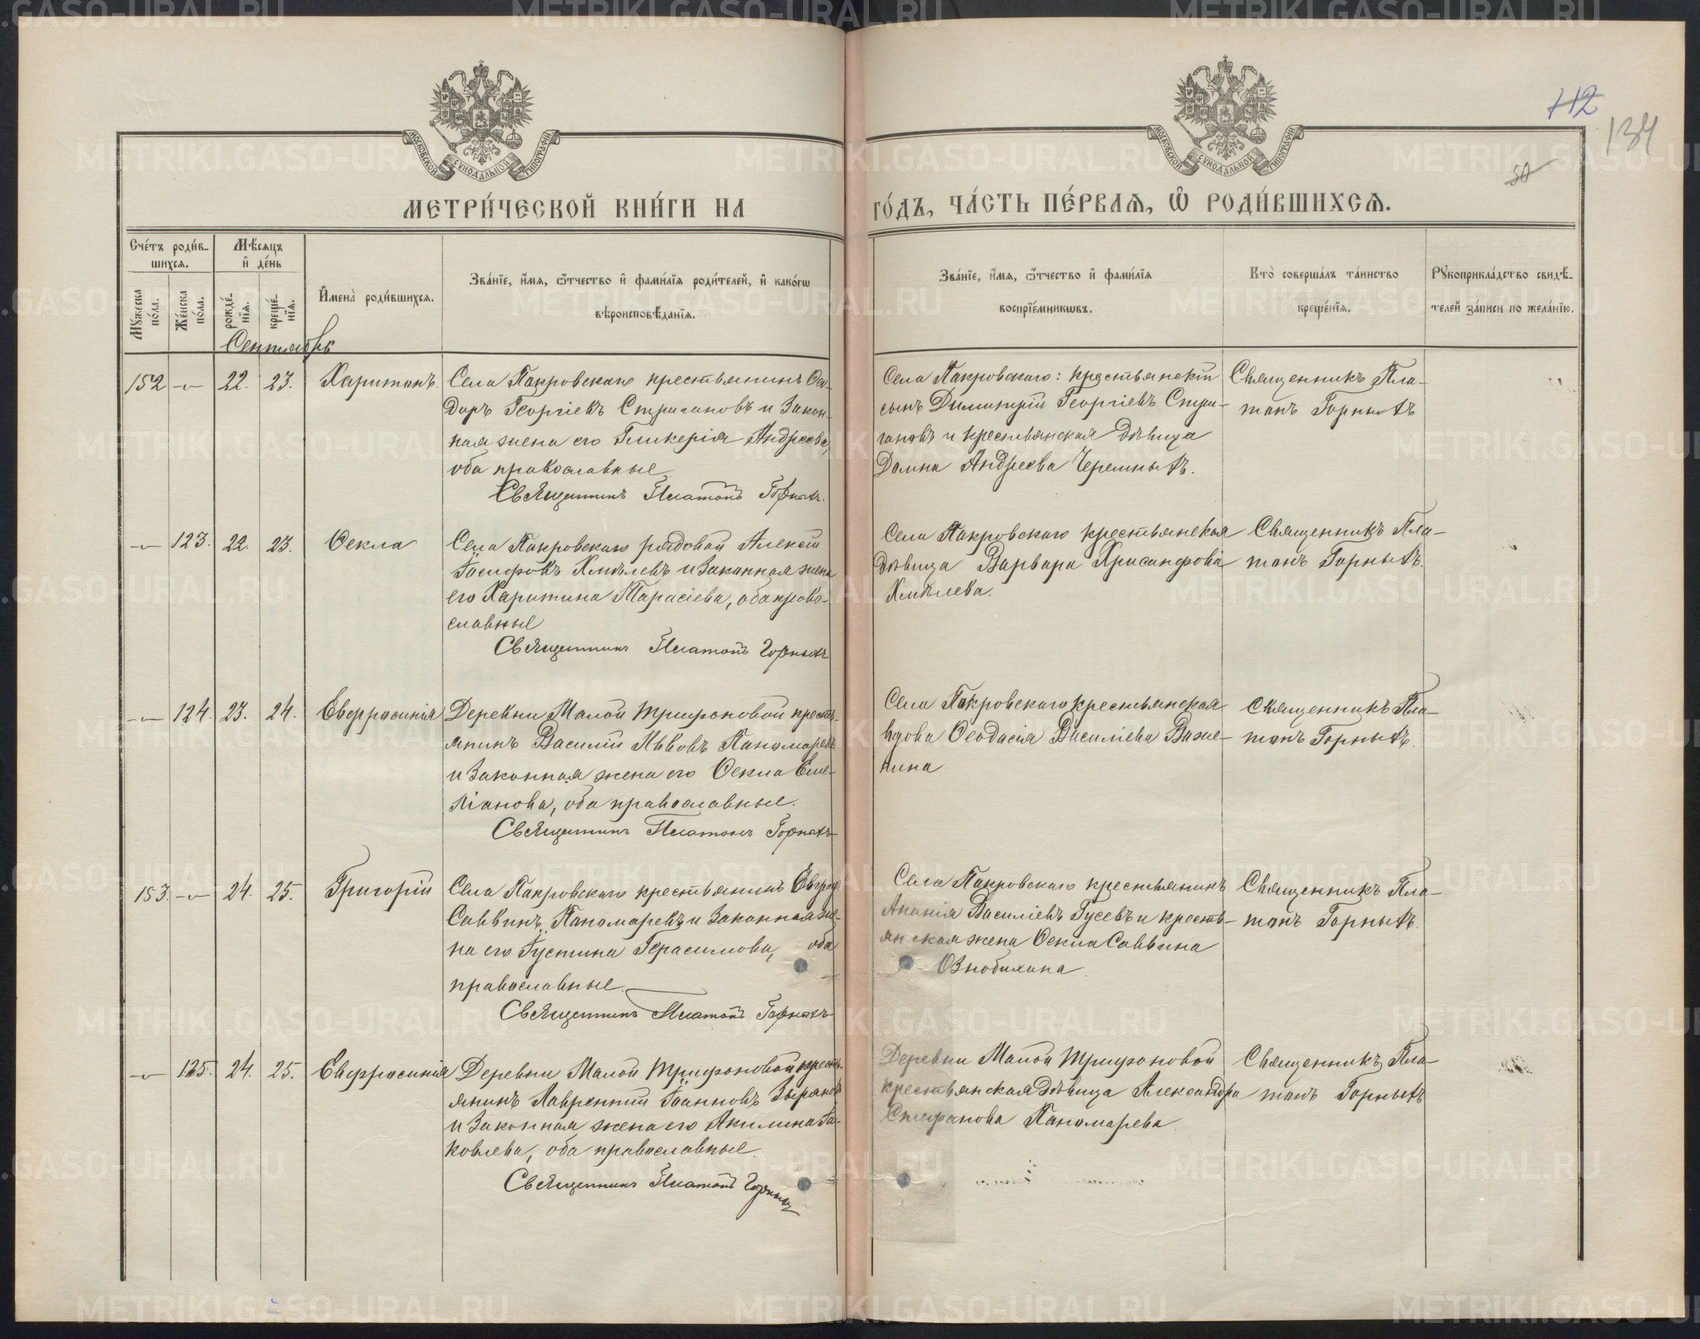 112
134
50
МОСКОВСКОЙ СУНОДАЛЬНОЙ ТИПОГРАФІИ
МОСКОВСКОЙ СУНОДАЛЬНОЙ ТИПОГРАФІИ
МЕТРИ́ЧЕСКОЙ КНИ́ГИ НА ГО́ДЪ, ЧА́СТЬ ПЕ́РВАЯ, Ѡ҆ РОДИ́ВШИХСЯ.
Сче́тъ роди́в-
шихся.
Мѣ́сяцъ
и҆ де́нь
Мꙋ́жеска по́ла.
Же́нска по́ла.
рожде́-нїя.
креще́-нїя.
И҆мена̀ роди́вшихся.
Зва́нїе, и҆́мя, ѻ҆́тчество и҆ фамі́лїя роди́телей, и҆ како́гѡ
вѣроисповѣ́данїя.
Зва́нїе, и҆́мя, ѻ҆́тчество и҆ фамі́лїя
воспрїе́мникѡвъ.
Кто̀ соверша́лъ та́инство
креще́нїя.
Рꙋкоприкла́дство свидѣ́-
телей за́писи по жела́нїю.
Сентябрь
152 — 22. 23. Харитонъ.
Села Покровскаго крестьянинъ Ѳео-
доръ Георгіевъ Стригановъ и закон-
ная жена его Гликерія Андреева,
оба православные
Священникъ Платонъ Горныхъ.
Села Покровскаго: крестьянскій
сынъ Димитрій Георгіевъ Стри-
гановъ и крестьянская дѣвица
Домна Андреева Черемныхъ.
Священникъ Пла-
тонъ Горныхъ
— 123. 22. 23. Ѳекла
Села Покровскаго рядовой Алексій
Іосифовъ Хмѣлевъ и законная жена
его Харитина Тарасіева, оба право-
славные
Священникъ Платонъ Горныхъ
Села Покровскаго крестьянская
дѣвица Варвара Хрисанфова
Хмѣлева.
Священникъ Пла-
тонъ Горныхъ.
— 124. 23. 24. Евфросинія
Деревни Малой Трифоновой кресть-
янинъ Василій Львовъ Пономаревъ
и законная жена его Ѳекла Еме-
ліанова, оба православные.
Священникъ Платонъ Горныхъ
Села Покровскаго крестьянская
вдова Ѳеодосія Василіева Важе-
нина
Священникъ Пла-
тонъ Горныхъ.
153. — 24. 25. Григорій
Села Покровскаго крестьянинъ Евграфъ
Саввинъ Пономаревъ и законная же-
на его Іустина Герасимова, оба
православные.
Священникъ Платонъ Горныхъ
Села Покровскаго крестьянинъ
Ананія Василіевъ Гусевъ и кресть-
янская жена Ѳекла Саввина
Ознобихина.
Священникъ Пла-
тонъ Горныхъ.
— 125. 24. 25. Евфросинія
Деревни Малой Трифоновой кресть-
янинъ Лаврентій Іоанновъ Зыряновъ
и законная жена его Акилина Іа-
ковлева, оба православные.
Священникъ Платонъ Горныхъ
Деревни Малой Трифоновой
крестьянская дѣвица Александра
Стефанова Пономарева.
Священникъ Пла-
тонъ Горныхъ
METRIKI.GASO-URAL.RU